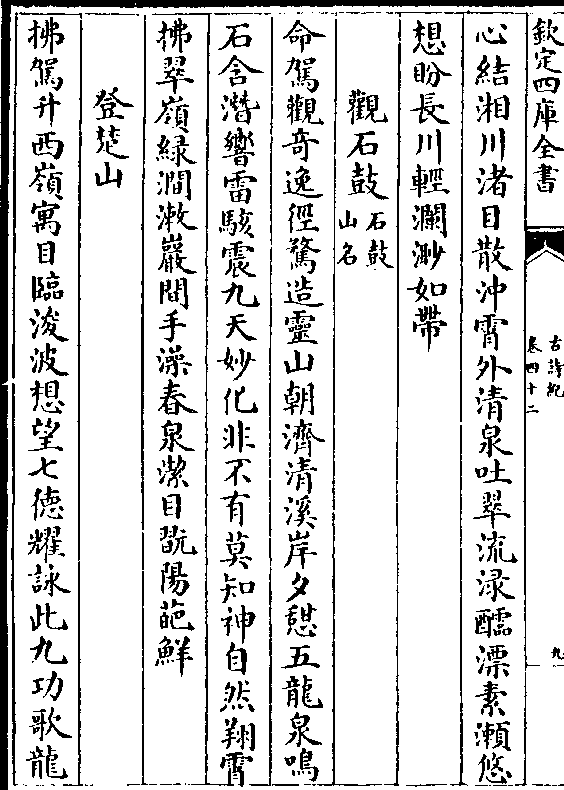 欽定四庫全書
古詩紀
卷四十二
九
心結湘川渚目散沖霄外清泉吐翠流渌醽漂素瀨悠
想盼長川輕瀾渺如帶
觀石鼓石鼓山名
命駕觀奇逸徑騖造靈山朝濟清溪岸夕憩五龍泉鳴
石含潛響雷駭震九天妙化非不有莫知神自然翔霄
拂翠嶺緑澗漱巖間手澡春泉潔目翫陽葩鮮
登楚山
拂駕升西嶺寓目臨浚波想望七德耀詠此九功歌龍